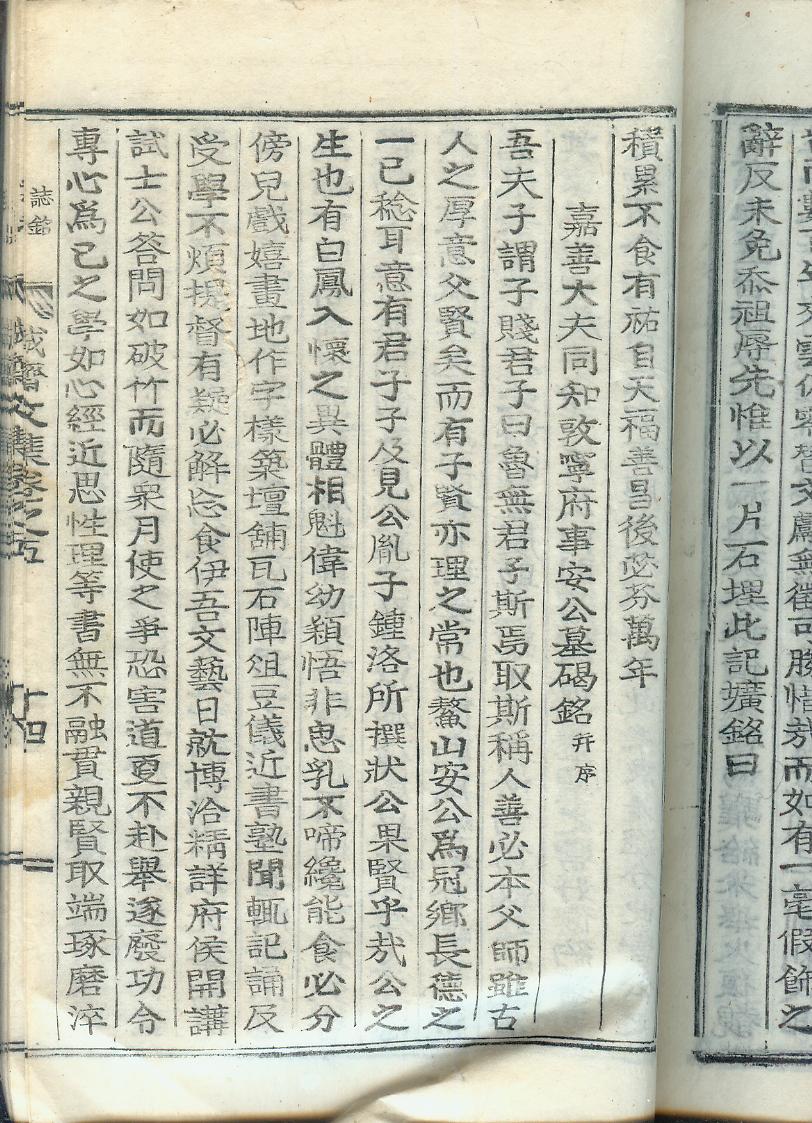 辭反未免忝祖辱先惟以一片石埋此記壙銘曰
積累不食有祐自天福善昌後必芬萬年
嘉善大夫同知敦寧府事安公墓碣銘 幷序
吾夫子謂子賤君子曰魯無君子斯焉取斯稱人善必本父師雖古
人之厚意父賢矣而有子賢亦理之常也鰲山安公爲冠鄕長德之
一已稔耳意有君子子及見公胤子鍾洛所撰狀公果賢乎哉公之
生也有白鳳入懷之異體相魁偉幼穎悟非患乳不啼纔能食必分
傍兒戲嬉畫地作字樣築壇鋪瓦石陣俎豆儀近書塾聞輒記誦反
受學不煩提督有疑必解忘食伊吾文藝日就博洽精詳府侯開講
試士公答問如破竹而隨衆月使之爭恐害道更不赴擧遂廢功令
專心爲己之學如心經近思性理等書無不融貫親賢取端琢磨淬
誌銘
文集卷之五